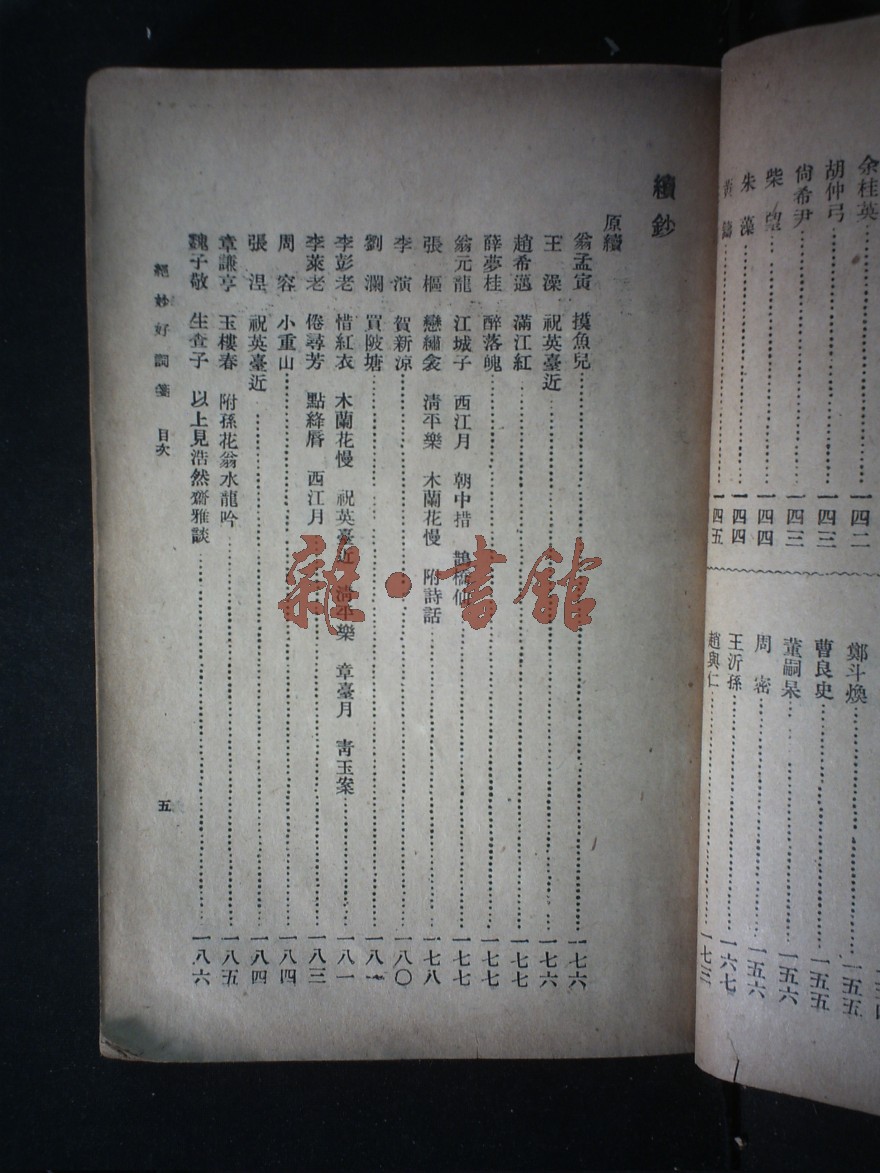 余桂英 一四二
胡仲弓 一四三
尚希尹 一四三
柴望 一四四
朱藻 一四四
黃鑄 一四五
鄭斗煥 一五五
曹良史 一五五
董嗣杲 一五六
周密 一五六
王沂孫 一六七
趙與仁 一七三
續鈔
原續
翁孟寅 摸魚兒 一七六
王澡 祝英臺近 一七六
趙希邁 滿江紅 一七七
薛夢桂 醉落魄 一七七
翁元龍 江城子 西江月 朝中措 鵲橋仙 一七七
張樞 戀繡衾 清平樂 木蘭花慢 附詩話 一七八
李演 賀新涼 一八〇
劉瀾 買陂塘 一八一
李彭老 惜紅衣 木蘭花慢 祝英臺近 清平樂 章臺月 青玉案 一八一
李萊老 倦尋芳 點絳唇 西江月 一八三
周容 小重山 一八四
張涅 祝英臺近 一八四
章謙亨 玉樓春 附孫花翁水龍吟 一八五
魏子敬 生查子 以上見浩然齋雅談 一八六
絕妙好詞箋 目次 五
雜·書館